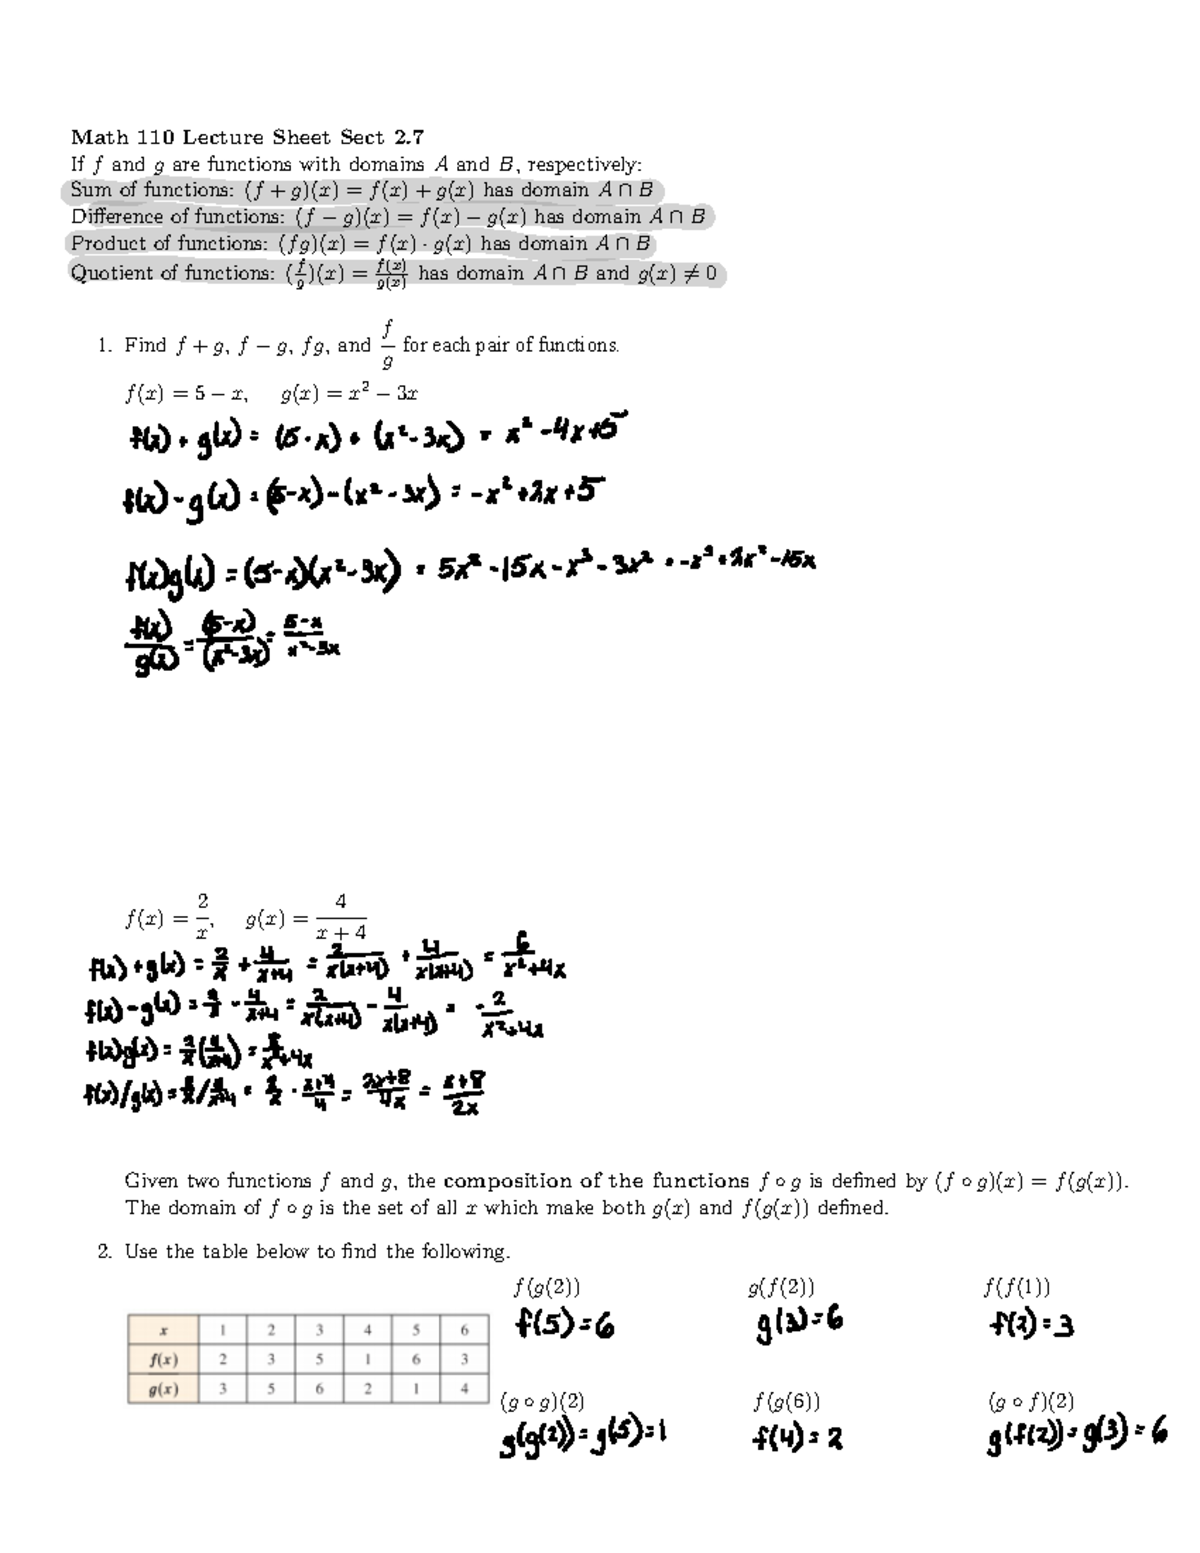 Math 110 Lecture Sheet Sect 2.7
If f and g are functions with domains A and B, respectively:
Sum of functions: (f + g)(x) = f(x) + g(x) has domain A ∩ B
Difference of functions: (f − g)(x) = f(x) − g(x) has domain A ∩ B
Product of functions: (fg)(x) = f(x) · g(x) has domain A ∩ B
Quotient of functions: (f/g)(x) = f(x)/g(x) has domain A ∩ B and g(x) ≠ 0
1. Find f + g, f − g, fg, and f/g for each pair of functions.
f(x) = 5 − x, g(x) = x² − 3x
f(x) + g(x) = (5 - x) + (x² - 3x) = x² - 4x + 5
f(x) - g(x) = (5-x) - (x² - 3x) = -x² + 2x + 5
f(x)g(x) = (5-x)(x² - 3x) = 5x² - 15x - x³ - 3x² = -x³ + 2x² - 15x
f(x)/g(x) = (5-x)/(x²-3x) = 5-x/x²-3x
f(x) = 2/x, g(x) = 4/(x + 4)
f(x) + g(x) = 2/x + 4/x+4 = 2/x(x+4) + 4/x(x+4) = 6/x²+4x
f(x) - g(x) = 2/x - 4/x+4 = 2/x(x+4) - 4/x(x+4) = -2/x²+4x
f(x)g(x) = 2/x (4/x+4) = 8/x²+4x
f(x)/g(x) = 2/x / 4/x+4 = 2/x · x+4/4 = 2x+8/4x = x+8/2x
Given two functions f and g, the composition of the functions f ∘ g is defined by (f ∘ g)(x) = f(g(x)).
The domain of f ∘ g is the set of all x which make both g(x) and f(g(x)) defined.
2. Use the table below to find the following.
f(g(2)) g(f(2)) f(f(1))
f(5) = 6 g(3) = 6 f(2) = 3
x 1 2 3 4 5 6
f(x) 2 3 5 1 6 3
g(x) 3 5 6 2 1 4
(g ∘ g)(2) f(g(6)) (g ∘ f)(2)
g(g(2)) = g(5) = 1 f(4) = 2 g(f(2)) = g(3) = 6